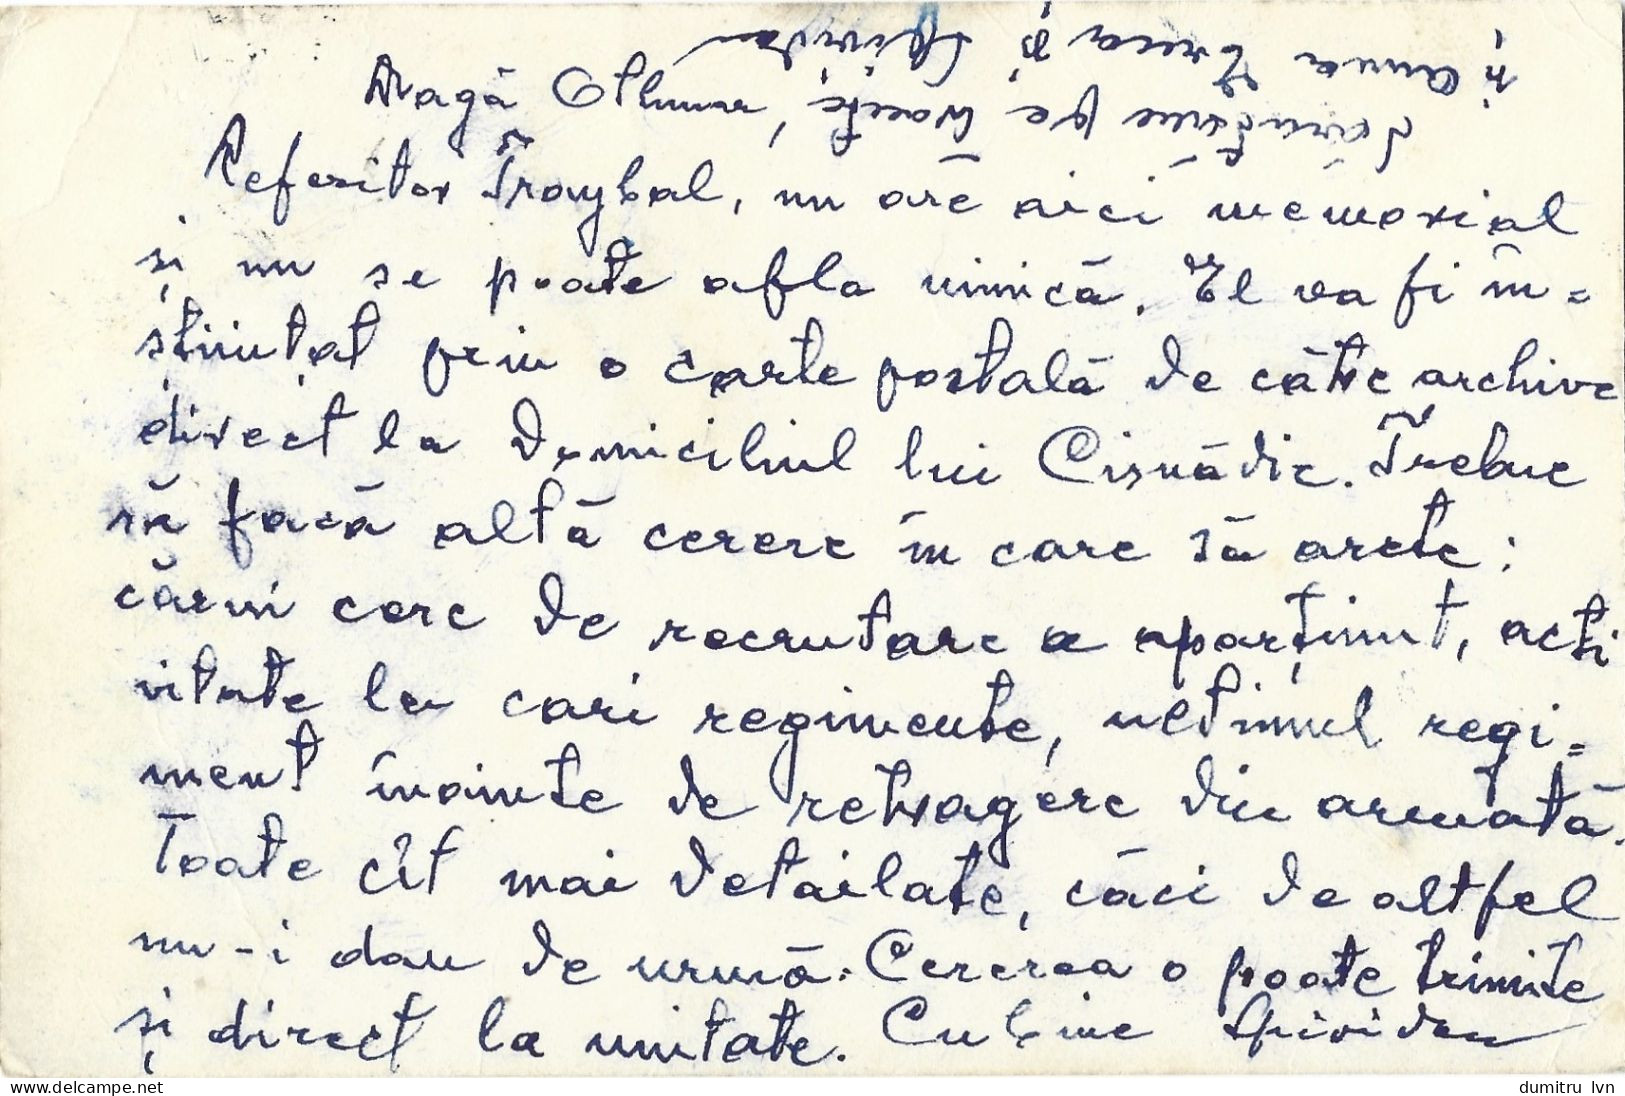 Dragă Othmar,
Referitor Traybal, nu are aici memorial
și nu se poate afla nimică. El va fi în=
științat prin o carte postală de către archive
direct la domiciliul lui Cisnădie. Trebue
să facă altă cerere în care să arete:
cărui cerc de recrutare a aparținut, acti
vitate la cari regimente, ultimul regi=
ment înainte de retragere din armată.
Toate cît mai detailate, căci de altfel
nu-i dau de urmă. Cererea o poate trimite
și direct la unitate. Cu bine Spiridon
pe
și Anna și Spiridon
dumitru lvn